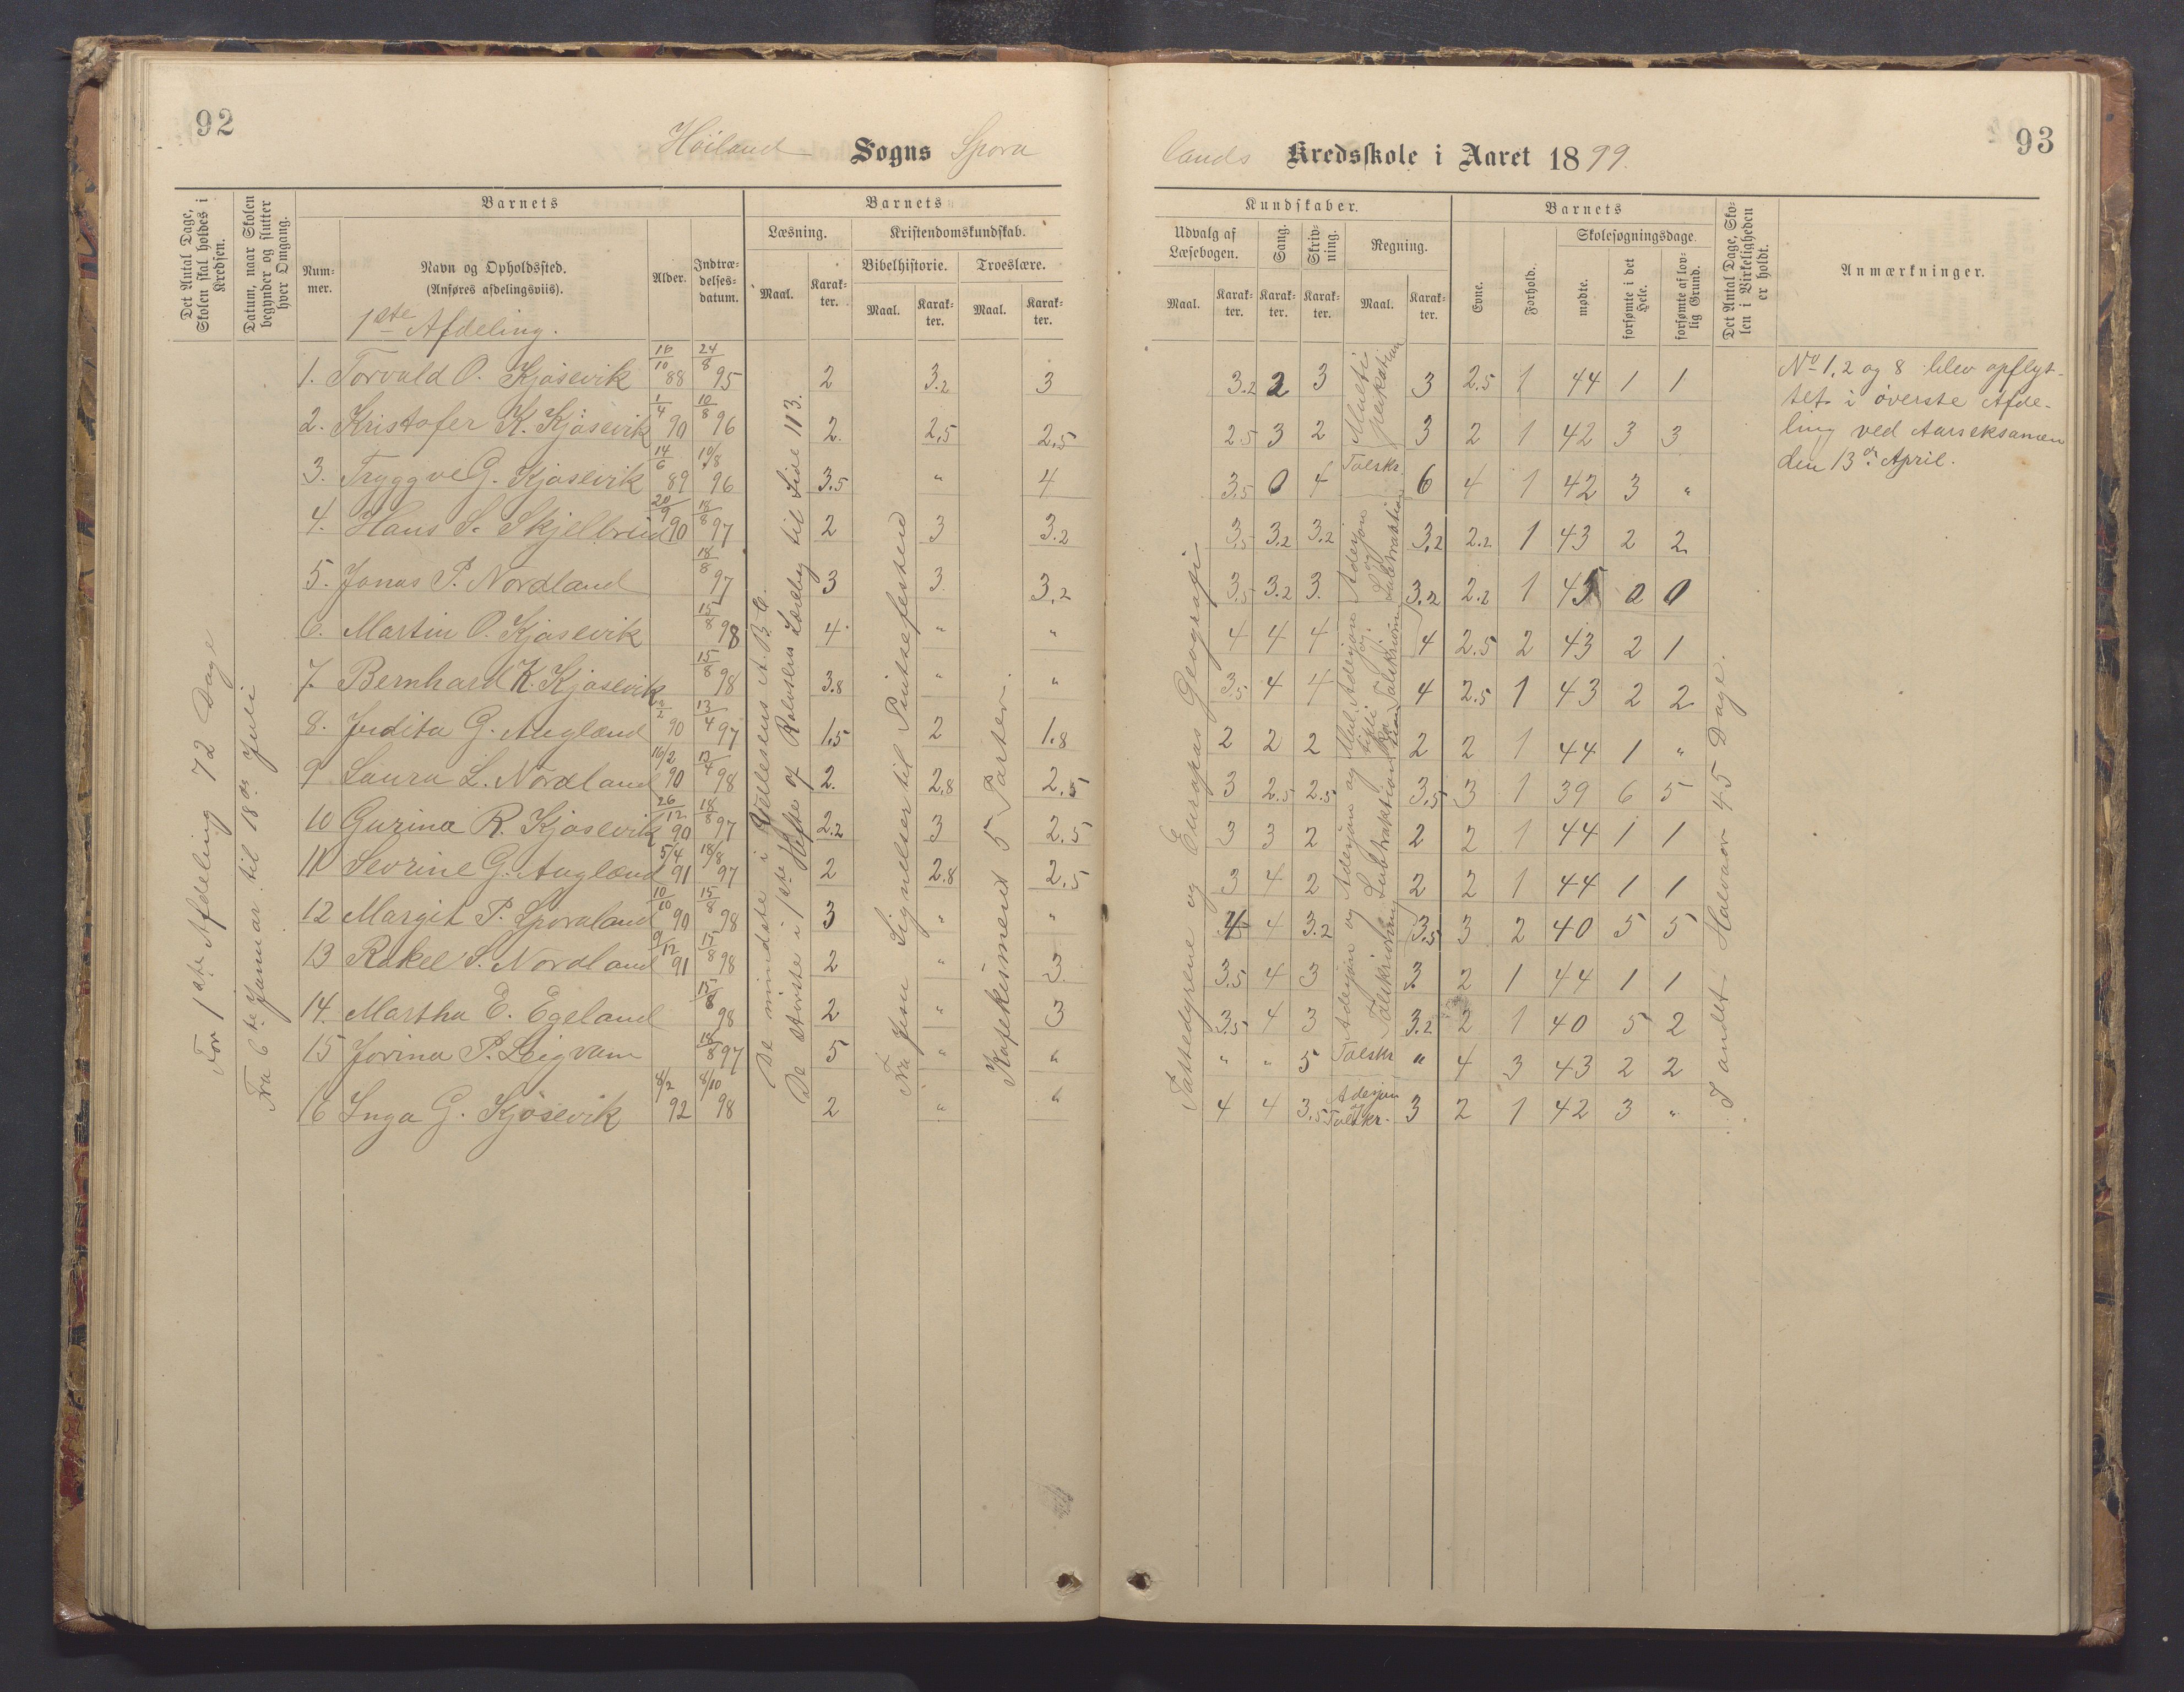 92
Höiland Sogns Spora
Det Antal Dage, Skolen skal holdes i Kredsen.
Datum, naar Skolen begynder og slutter hver Omgang.
Barnets
Num-mer.
Navn og Opholdssted.
(Anføres afdelingsviis).
Alder.
Indtræ-delses-datum.
Barnets
Læsning.
Kristendomskundskab.
Bibelhistorie.
Troeslære.
Maal.
Karak-ter.
Maal.
Karak-ter.
Maal.
Karak-ter.
1ste Afdeling.
For 1ste Afdeling 72 Dage
Fra 6te Januar til 18de Juli
De mindste i Voldesens A.B.C.
De störste i 1ste Hefte af Rolvsens Læseby til Side 113.
Fra Jesu Lignelser til Pintsefesten
Katekismens 5 Parter.
1. Torvald O. Kjösevik 16/10 88 24/8 95 2 3.2 3
2. Kristofer K. Kjösevik 1/4 90 10/8 96 2. 2,5 2,5
3. Tryggve G. Kjösevik 14/6 89 10/8 96 3.5 " 4
4. Hans S. Skjelbreid 20/9 90 18/8 97 2 3 3.2
5. Jonas P. Nordland 18/8 97 3 3 3,2
6. Martin O. Kjösevik 15/8 98 4 " "
7. Bernhard K. Kjösevik 15/8 98 3.8 " "
8. Judita G. Augland 2/2 90 13/4 97 1,5 2 1.8
9 Laura L. Nordland 16/2 90 13/4 98 2. 2,8 2.5
10 Gurina R. Kjösevik 26/12 90 18/8 97 2.2 3 2.5
11 Sevrine G. Augland 5/4 91 18/8 97 2 2.8 2.5
12 Margit P. Sporaland 10/10 90 15/8 98 3 " "
13 Rakel S. Nordland 9/12 91 17/8 98 2 " 3
14. Martha E. Egeland 15/8 98 2 " 3
15 Jorina P. Leigvam 18/8 97 5 " "
16 Inga G. Kjösevik 8/2 92 8/10 98 2 " "
93
lands Kredsskole i Aaret 1899.
Kundskaber.
Udvalg af Læsebogen.
Sang.
Skriv-ning.
Regning.
Maal.
Karak-ter.
Karak-ter.
Karak-ter.
Maal.
Karak-ter.
Barnets
Evne.
Forhold.
Skolesøgningsdage.
mødte.
forsømte i det Hele.
forsømte af lov-lig Grund.
Det Antal Dage, Sko-len i Virkeligheden er holdt.
Anmærkninger.
Pattedyrene og Europas Geografi
3.2 2 3 Multi plikation 3 2.5 1 44 1 1
2.5 3 2 3 2 1 42 3 3
3,5 0 4 Talskr. 6 4 1 42 3 "
3,5 3,2 3.2 Adesjon og Subtraktion 3,2 2.2 1 43 2 2
3,5 3.2 3. 3.2 2.2 1 45 0 0
4 4 4 Adesjon og Talskrivning 4 2.5 2 43 2 1
3,5 4 4 4 2.5 1 43 2 2
2 2 2 2 2 1 44 1 "
3 2.5 2.5 Adesjon og Subtraktion 3,5 3 1 39 6 5
3 3 2 2 2 1 44 1 1
3 4 2 2 2 1 44 1 1
4 4 3.2 Adesjon og Talskrivning 3.5 3 2 40 5 5
3.5 4 3 3. 2 1 44 1 1
3.5 4 3 3.2 2 1 40 5 2
" " 5 Talskr " 4 3 43 2 2
4 4 3.5 Adesjon og Talskr. 3 2 1 42 3 "
I andet Halvaar 45 Dage.
No 1, 2 og 8 blev opflyt-
tet i överste Afde-
ling ved Aarseksamen
den 13de April.